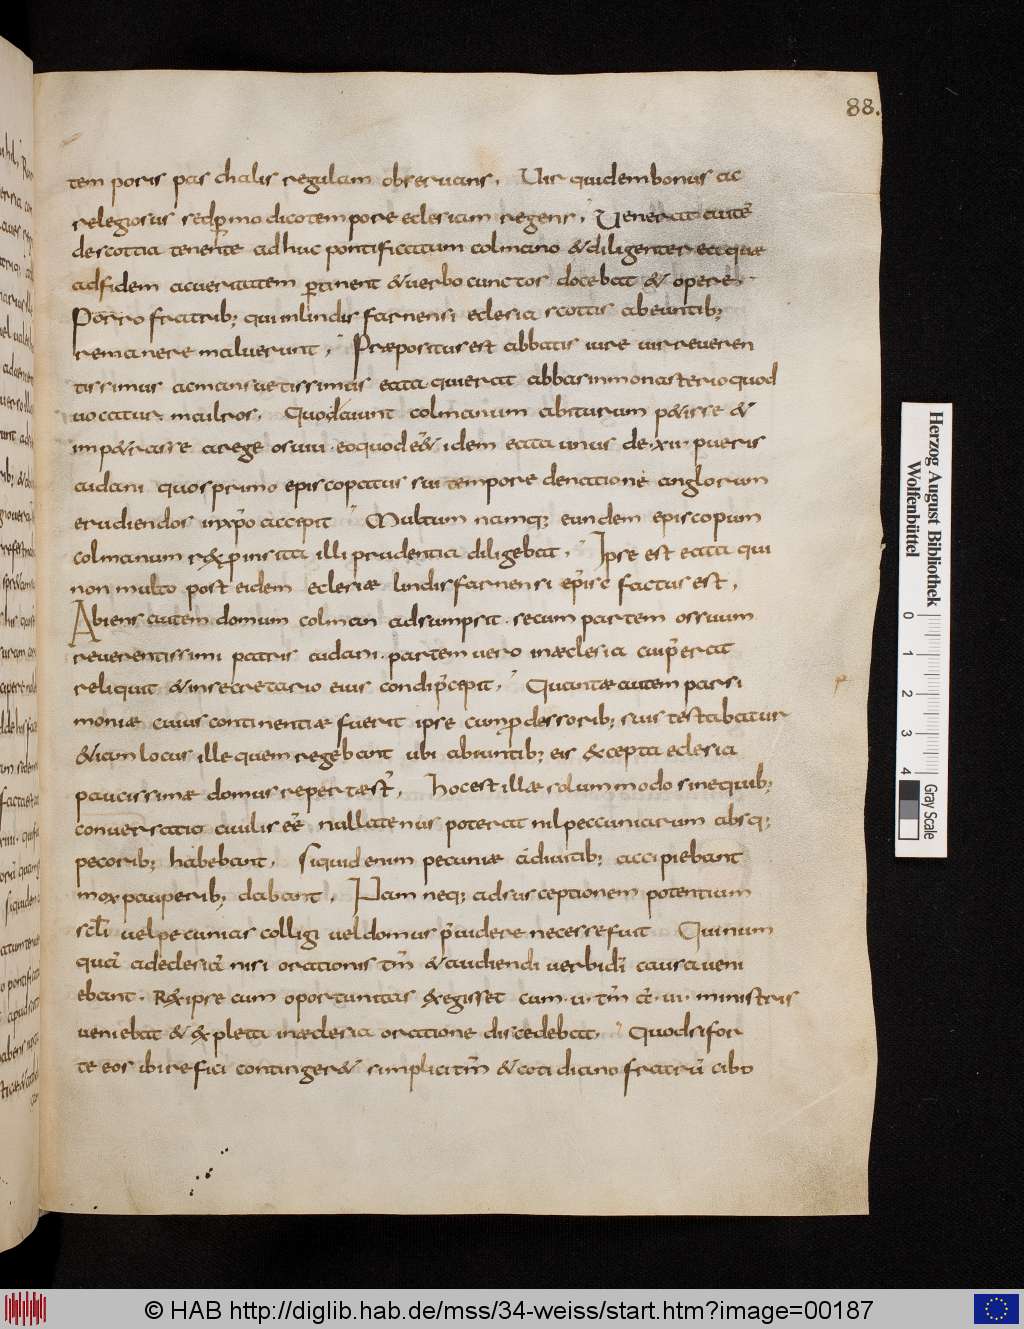 88.
tem poris pas chalis regulam obseruans. Uir quidem bonus ac
relegiosus sed permodico tempore eclesiam regens. Uenerat autē
de scottia tenente adhuc pontificatum colmano & diligenter ea que
ad fidem ac ueritatem ptinent & uerbo cunctos docebat & opere.
Porro fratrib; qui in lindis farnensi eclesia scotis abeuntib;
remanere maluerunt. Præpositus est abbatis iure uir reueren
tissimus ac mansuetissimus eata qui erat abbas in monasterio quod
uocatur mailros. Quod aiunt colmanum abiturum p&isse &
imp&rasse a rege osuiu. eo quod eēt idem eata unus de .xii. pueris
aidani quos primo episcopatus sui tempore de natione anglorum
erudiendos in xp̄o accipit Multum namq; eundem episcopum
colmanum rex pro insita illi prudentia diligebat. Ipse est eata qui
non multo post eidem eclesiæ lindisfarnensi epīsc factus est.
Abiens autem domum colman adsumpsit. secum partem ossuum
reuerentissimi patris aidani. partem uero in æclesia cui p̄erat
reliquit & in secretario eius condi p̄cepit. Quantæ autem parsi
moniæ cuius continentiæ fuerit ipse cum p̄dessorib; suis testabatur
&iam locus ille quem regebant ubi abiuntib; eis excepta eclesia
paucissimæ domus repertæ st̄. Hoc est illæ solummodo sine quib;
conuersatio ciuilis eē nullatenus poterat nil peccuniarum absq;
pecorib; habebant. Siquid enim pecuniæ a diuitib; accipiebant
mox pauperib; dabant. Nam neq; ad susceptionem potentium
sc̄li uel pecunias colligi uel domus p̄uidere necesse fuit Qui num
quā ad eclesiā nisi orationis tm̄ & audiendi uerbi dī causa ueni
ebant. Rex ipse cum oportunitas exegisset cum .u. tm̄ aū .ui. ministris
ueniebat & expleta in æclesia oratione discedebat. Quod si for
te eos ibi refici conting&r& simplici tm̄ & cotidiano fratrū cibo
Herzog August Bibliothek
Wolfenbüttel
0 1 2 3 4
Gray Scale
© HAB http://diglib.hab.de/mss/34-weiss/start.htm?image=00187